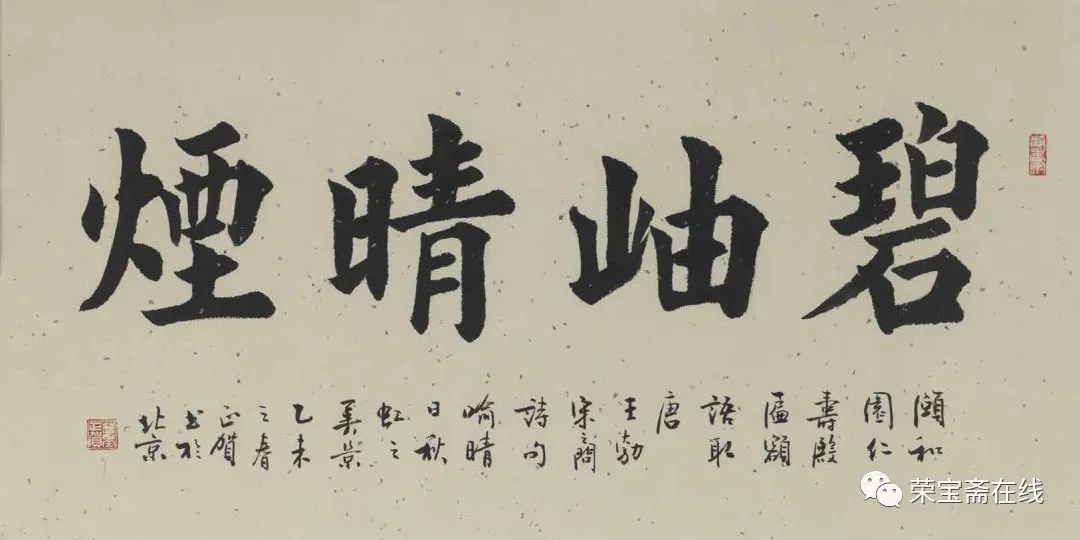 碧岫晴煙
頤和
園仁
壽殿
匾額
語取
唐
王勃
宋之問
詩句
喻晴
日秋
虹之
美景
乙未
之春
正賀
書於
北京
荣宝斋在线